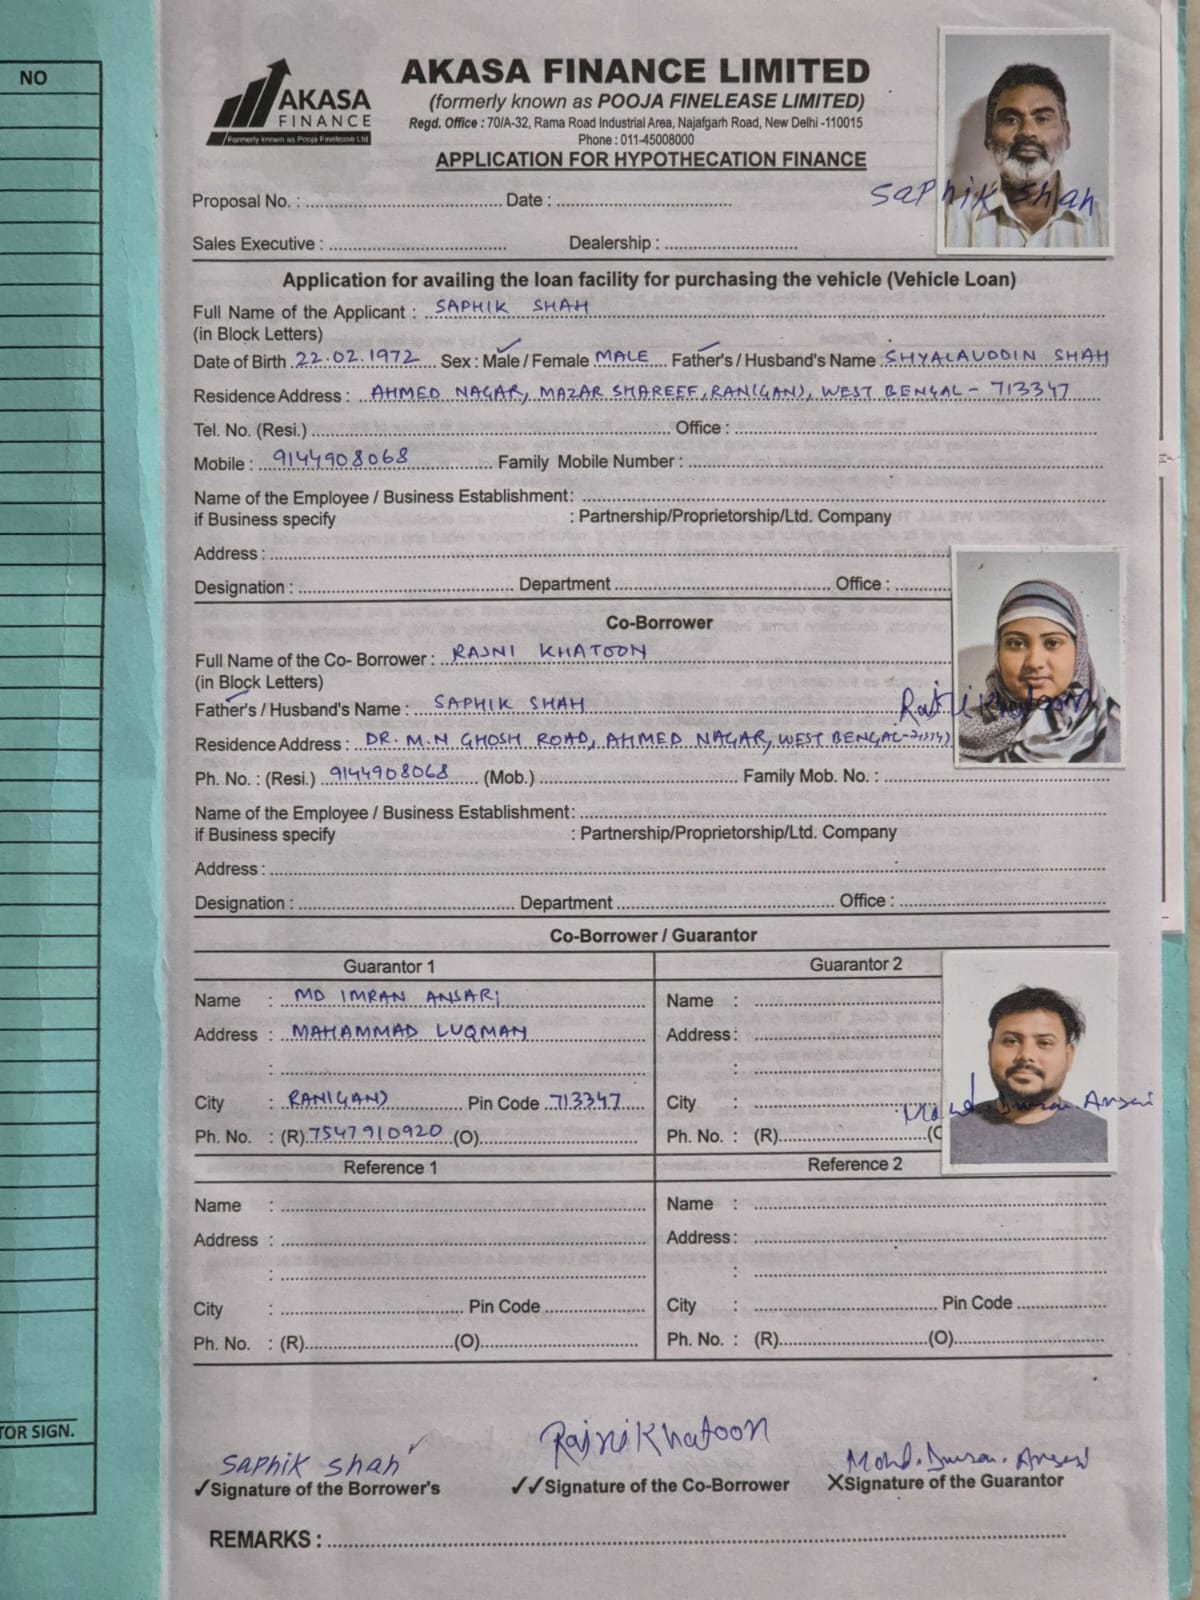 NO
AKASA FINANCE
Formerly known as Pooja Finelease Ltd
AKASA FINANCE LIMITED
(formerly known as POOJA FINELEASE LIMITED)
Regd. Office : 70/A-32, Rama Road Industrial Area, Najafgarh Road, New Delhi -110015
Phone : 011-45008000
APPLICATION FOR HYPOTHECATION FINANCE
Saphik Shah
Proposal No. : Date :
Sales Executive : Dealership :
Application for availing the loan facility for purchasing the vehicle (Vehicle Loan)
Full Name of the Applicant : SAPHIK SHAH
(in Block Letters)
Date of Birth 22.02.1972 Sex : Male / Female MALE Father's / Husband's Name SHYALAUDDIN SHAH
Residence Address : AHMED NAGAR, MAZAR SHAREEF, RANIGANJ, WEST BENGAL - 713347
Tel. No. (Resi.) Office :
Mobile : 9144908068 Family Mobile Number :
Name of the Employee / Business Establishment:
if Business specify : Partnership/Proprietorship/Ltd. Company
Address :
Designation : Department Office :
Co-Borrower
Full Name of the Co- Borrower : RAJNI KHATOON
(in Block Letters)
Father's / Husband's Name : SAPHIK SHAH
Rajni Khatoon
Residence Address : DR. M.N GHOSH ROAD, AHMED NAGAR, WEST BENGAL-
Ph. No. : (Resi.) 9144908068 (Mob.) Family Mob. No. :
Name of the Employee / Business Establishment:
if Business specify : Partnership/Proprietorship/Ltd. Company
Address :
Designation : Department Office :
Co-Borrower / Guarantor
Guarantor 1 Guarantor 2
Name : MD IMRAN ANSARI Name :
Address : MAHAMMAD LUQMAN Address :
: :
City : RANIGANJ Pin Code 713347 City :
Mohd. Imran. Ansari
Ph. No. : (R) 7547910920 (O) Ph. No. : (R) (O
Reference 1 Reference 2
Name : Name :
Address : Address :
: :
City : Pin Code City : Pin Code
Ph. No. : (R) (O) Ph. No. : (R) (O)
TOR SIGN.
Saphik Shah Rajni Khatoon Mohd. Imran. Ansari
✓Signature of the Borrower's ✓✓Signature of the Co-Borrower XSignature of the Guarantor
REMARKS :